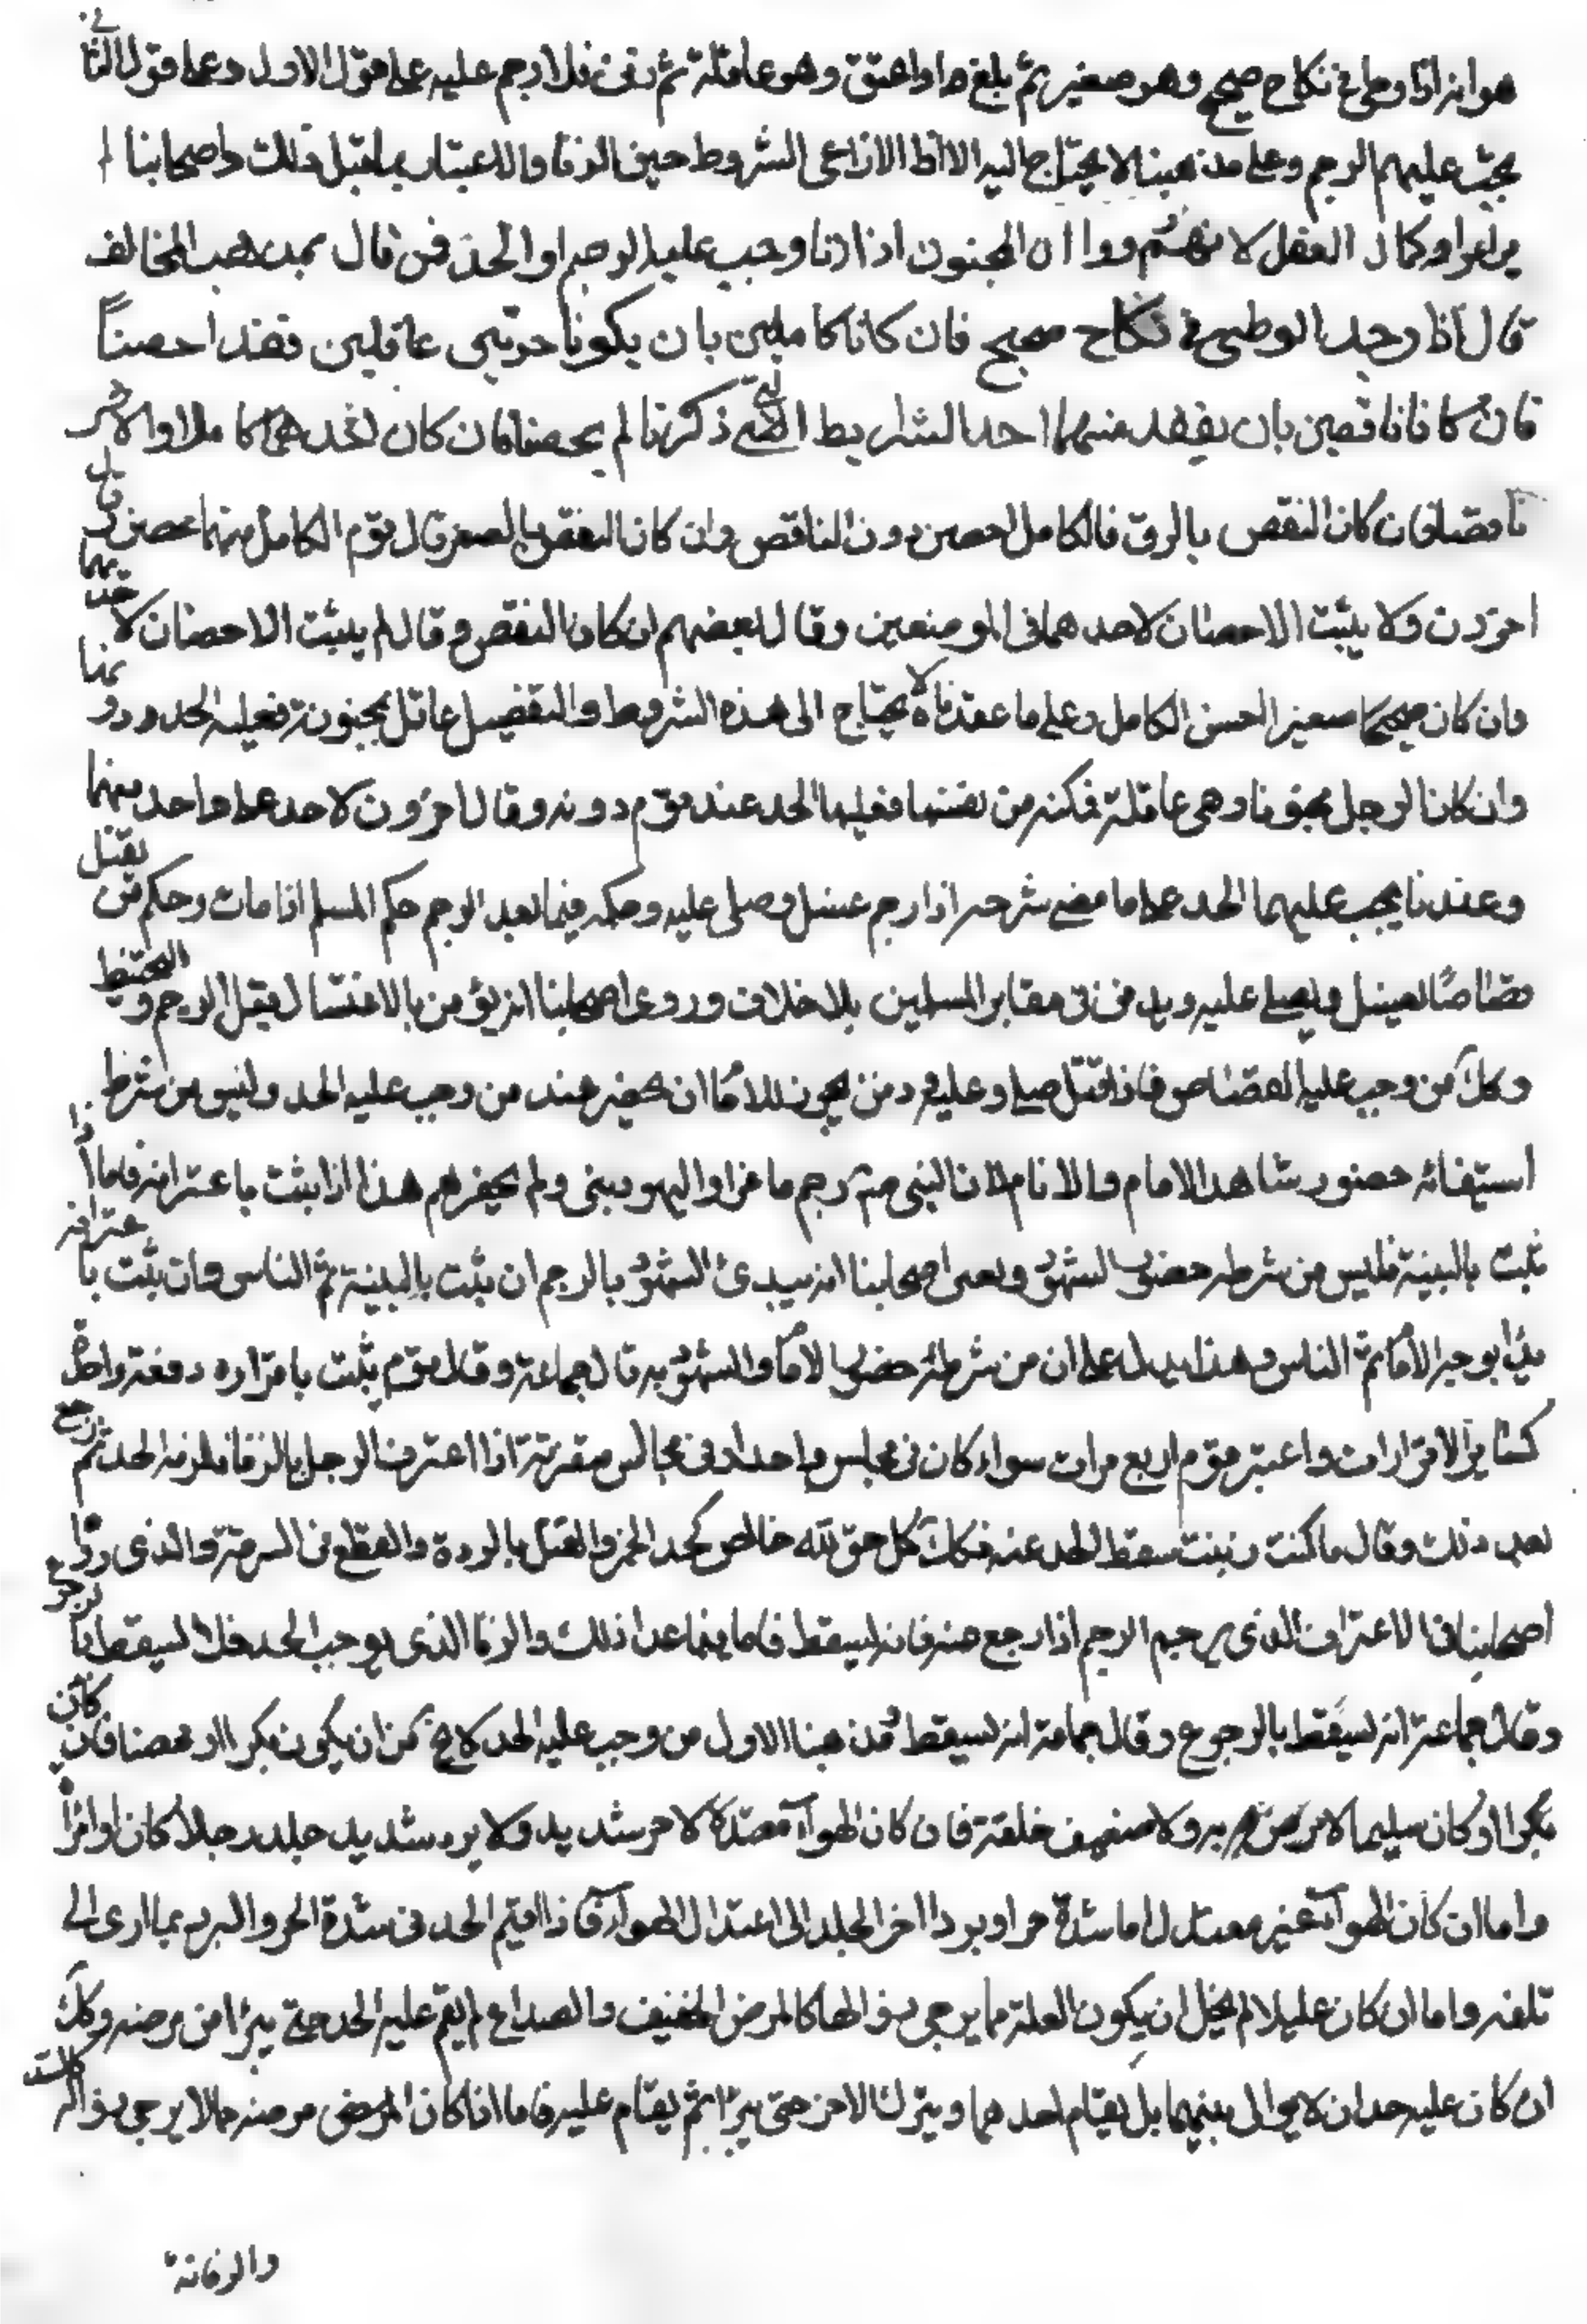 هو انه اذا وطى فى نكاح صحيح وهو صغير ثم بلغ او اعتق وهو عاقلة ثم زنى فلا رجم عليه على قول الاول وعلى قول الثانى
يجب عليهم الرجم وعلى مذهبنا لا يحتاج اليه الا انا نراعى الشروط حين الزنا والاعتبار بما قبل ذلك واصحابنا لم
يراعوا كمال العقل لانهم رووا ان المجنون اذا زنا وجب عليه الرجم او الحد فمن قال بمذهب المخالف
قال اذا وجد الوطى فى نكاح صحيح فان كانا كاملين بان يكونا حرين عاقلين فقد احصنا
فان كانا ناقصين بان يفقد منهما احد الشرايط التى ذكرنا لم يحصنا فان كان احدهما كاملا والاخر
ناقصا فان كان النقص بالرق فالكامل احصن دون الناقص وان كان النقص بالصغر قال قوم الكامل منهما محصن وقال
اخرون لا يثبت الاحصان لاحدهما فى الموضعين وقال بعضهم ان كان النقص رق لم يثبت الاحصان لاحدهما
وان كان صغيرا احصن الكامل وعلى ما عقدناه لا يحتاج الى هذه الشروط والتفصيل عاقل بمجنونة فعليه الحد دونها
وان كان الرجل مجنونا وهى عاقلة فمكنته من نفسها فعليها الحد عند قوم دونه وقال اخرون لا حد على واحد منهما
وعندنا يجب عليهما الحد على ما مضى شرحه اذا رجم غسل وصلى عليه وحكمه فيما بعد الرجم حكم المسلم اذا مات وحكم من يقتل
قصاصا يغسل ويصلى عليه ويدفن فى مقابر المسلمين بلا خلاف وروى اصحابنا انه يؤمر بالاغتسال قبل الرجم والتحنيط
وكك من وجب عليه القصاص فاذا قتل صلى عليه ودفن يجوز للامام ان يحضر عند من وجب عليه الحد وليس من شرط
استيفائه حضور شاهد الامام والامام لان النبى رجم ماعزا واليهوديين ولم يحضرهم هذا اذا ثبت باعترافه فاما اذا
ثبت بالبينة فليس من شرطه حضور الشهود وروى اصحابنا انه يبدئ الشهود بالرجم ان ثبت بالبينة ثم الناس وان ثبت باعترافه
بدا بوجبه الامام ثم الناس وهذا يدل على ان من شرطه حضور الامام والشهود به قال جماعة وقال قوم يثبت باقراره دفعة واحدة
كساير الاقرارات واعتبر قوم اربع مرات سواء كان فى مجلس واحد او فى مجالس متفرقة اذا اعترف الرجل بالزنا فلزمه الحد ثم رجع
بعد ذلك وقال ما كنت زنيت سقط الحد عنه وكك كل حق لله خالص كحد الخمر والقتل بالردة والقطع فى السرقة والذى رواه
اصحابنا فى الاعتراف الذى يوجب الرجم اذا رجع عنه فانه يسقط فاما فيما عدا ذلك والزنا الذى يوجب الحد فلا يسقط بالرجوع
وقال جماعة انه يسقط بالرجوع وقال جماعة انه لا يسقط مذهبنا الاول من وجب عليه الحد لا يخ من ان يكون بكرا او محصنا فان كان
بكرا او كان سليما لا مرض به ولا ضعيف خلقة فان كان الهوآء معتدلا لا حر شديد ولا برد شديد جلد رجلا كان او امراة
واما ان كان الهوآء غير معتدل اما شدة حر او برد اخر الجلد الى اعتدال الهوآء فاذا اقيم الحد فى شدة الحر والبرد بما ادى الى
تلفه واما ان كان عليلا لم يخل ان يكون العلة مما يرجى زوالها كالمرض الخفيف والصداع لم يقم عليه الحد حتى يبرا من مرضه وكك
ان كان عليه حدان لا يوالى بينهما بل يقام احدهما ويترك الاخر حتى يبرا ثم يقام عليه فاما اذا كان المرض مرضه مما لا يرجى زواله كالسل
والزمانة